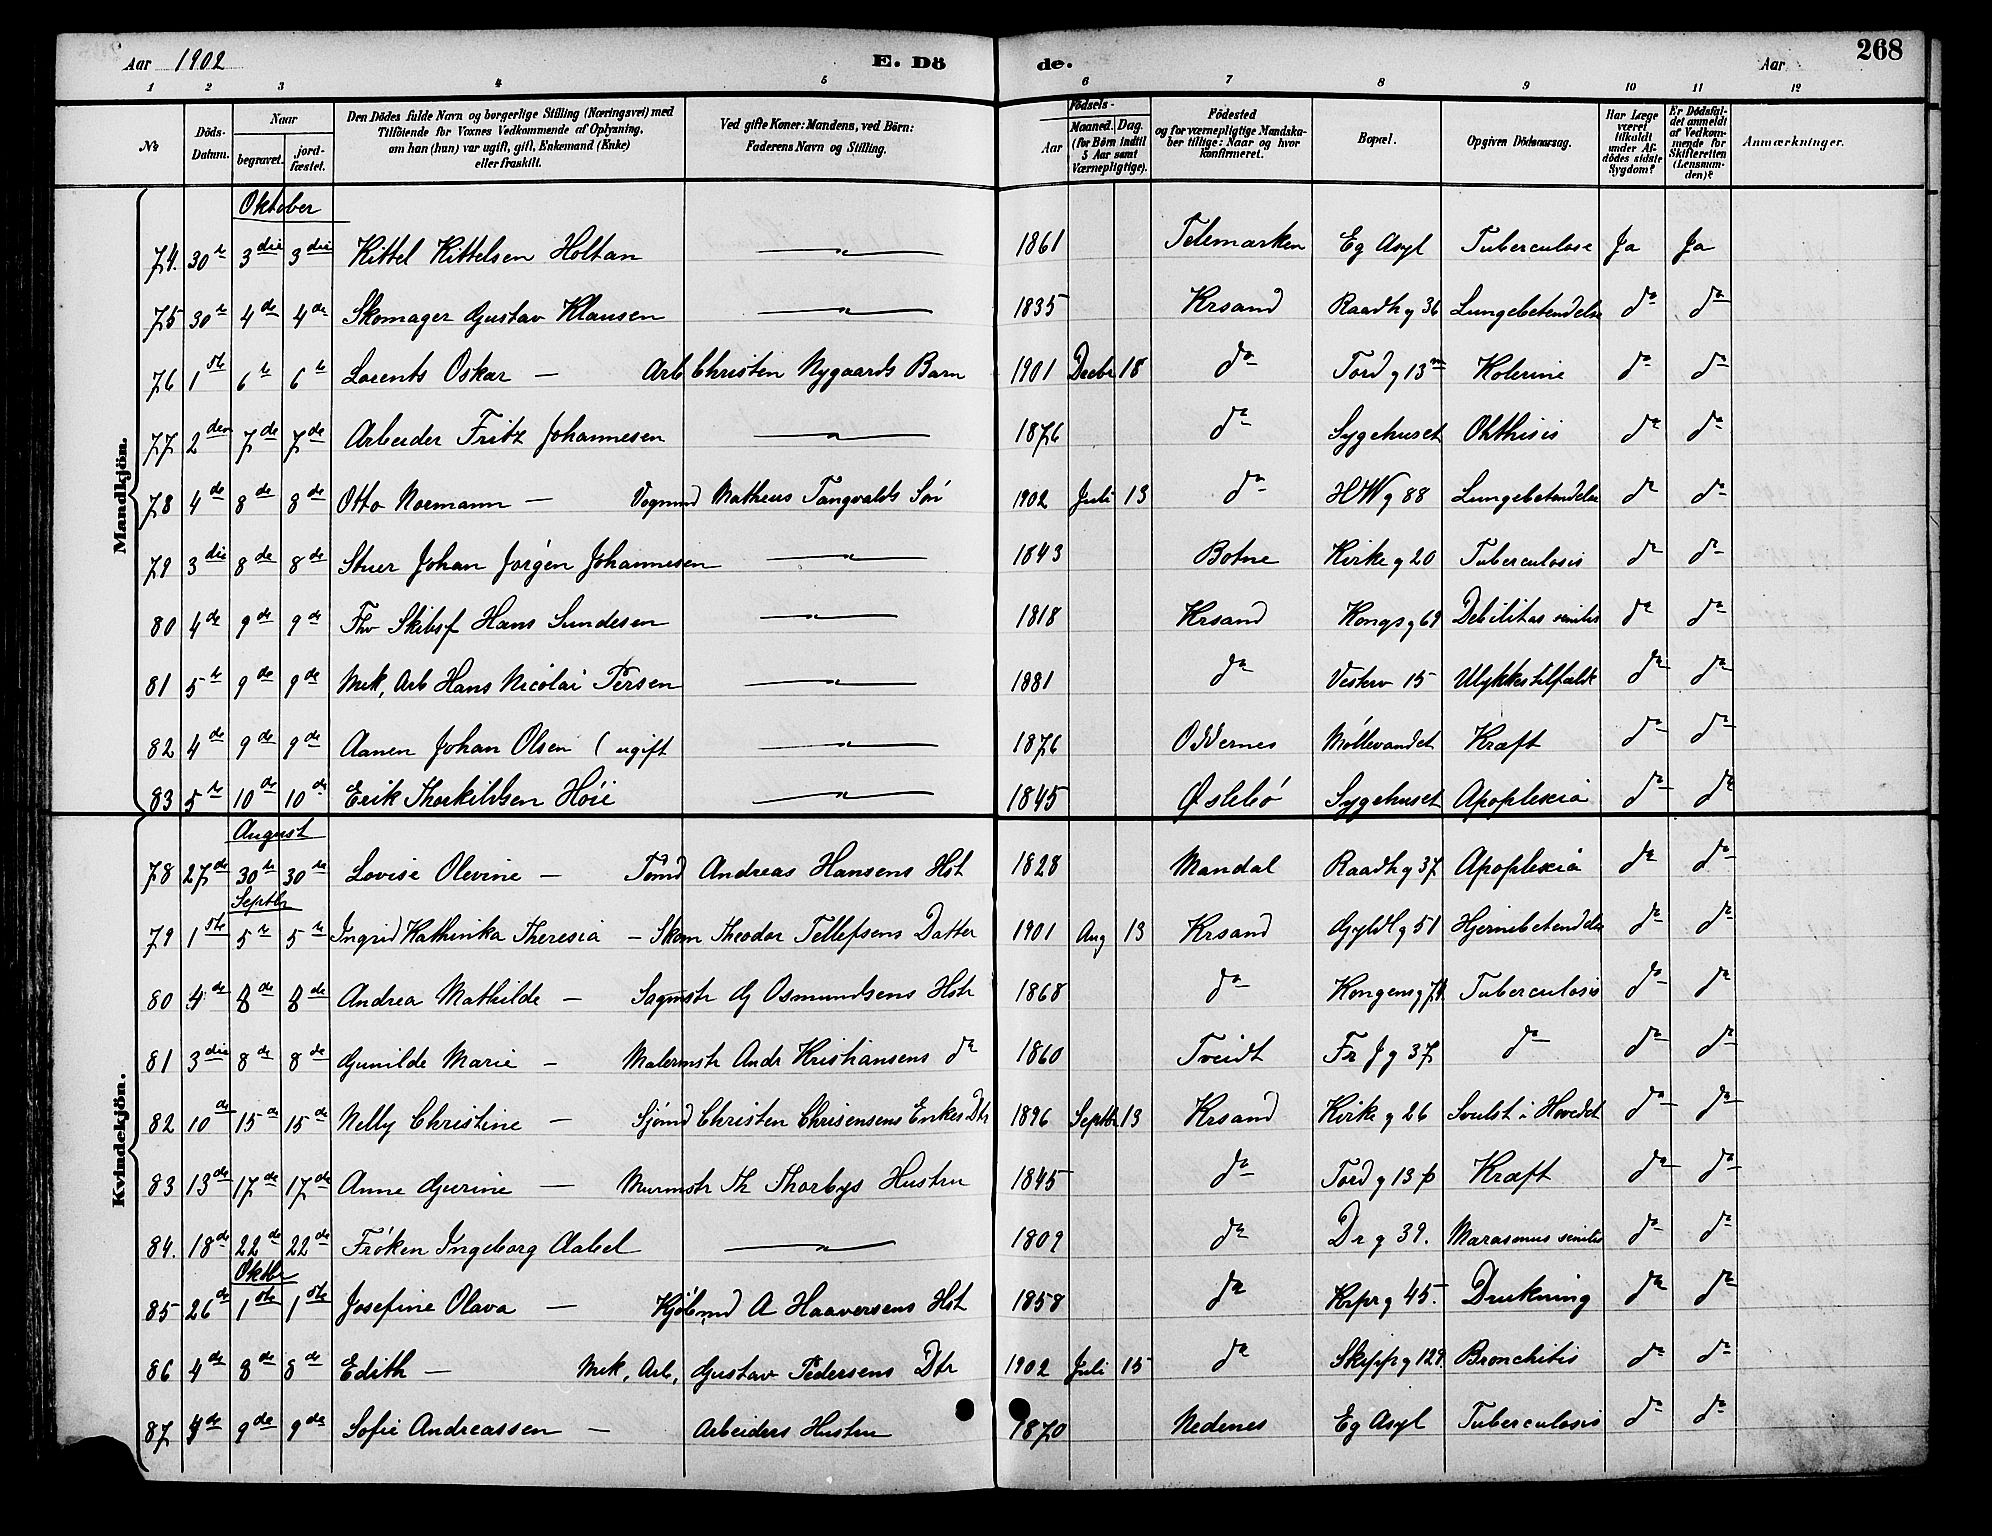 Aar 1902 E. Dö de. Aar 268
1 2 3 4 5 6 7 8 9 10 11 12
No Döds-Datum. Naar begravet. jordfæstet. Den Dödes fulde Navn og borgerlige Stilling (Næringsvei) med Tilföiende for Voxnes Vedkommende af Oplysning, om han (hun) var ugift, gift, Enkemand (Enke) eller fraskilt. Ved gifte Koner: Mandens, ved Börn: Faderens Navn og Stilling. Födsels- Aar Maaned. Dag. (for Börn indtil 5 Aar samt Værnepligtige). Födested og for værnepligtige Mandskaber tillige: Naar og hvor konfirmeret. Bopæl. Opgiven Dödsaarsag. Har Læge været tilkaldt under Afdödes sidste Sygdom? Er Dödsfaldet anmeldt af Vedkommende for Skifteretten (Lensmanden)? Anmærkninger.
Mandkjön.
Oktober
74. 30te 3die 3die Kittel Kittelsen Holtan — " — 1861 Telemarken Eg Asyl Tuberculose Ja Ja
75 30te 4de 4de Skomager Gustav Klausen — " — 1835 Krsand Raadhg 36 Lungebetendelse do do
76 1ste 6te 6te Lorents Oskar — Arb Christen Nygaards Barn 1901 Decbr 18 do Tord g 13m Kolerine do do
77 2den 7de 7de Arbeider Fritz Johannesen — " — 1876 do Sygehuset Phthisis do do
78 4de 8de 8de Otto Normann — Vognmd Matheus Tangvalds Søn 1902 Juli 13 do HWg 88 Lungebetendelse do do
79 3die 8de 8de Stuer Johan Jørgen Johannesen — " — 1843 Botne Kirke g 20 Tuberculosis do do
80 4de 9de 9de Fhv Skibsf Hans Sundesen — " — 1818 Krsand Kongs g 69 Debilitas senilis do do
81 5te 9de 9de Mek, Arb Hans Nicolai Persen — " — 1881 do Vesterv 15 Ulykkestilfælde do do
82 4de 9de 9de Aanen Johan Olsen (ugift — " — 1876 Oddernes Møllevandet Kræft do do
83 5te 10de 10de Erik Thorkildsen Høie — " — 1845 Øslebø Sygehuset Apoplexia do do
Kvindekjön.
August
78 27de 30te 30te Lovise Olevine — Tømd Andreas Hansens Hst 1828 Mandal Raadh g 37 Apoplexia do do
Septbr
79 1ste 5te 5te Ingrid Kathinka Theresia — Skom Theodor Tellefsens Datter 1901 Aug 13 Krsand Gyldl g 51 Hjernebetendelse do do
80 4de 8de 8de Andrea Mathilde — Sagmstr G Osmundsens Hstr 1868 do Kongens g 74 Tuberculosis do do
81 3die 8de 8de Gunilde Marie — Malermstr Andr Kristiansens do 1860 Tveidt Fr J g 37 do do do
82 10de 15de 15de Nelly Christine — Sjømd Christen Chrisensens Enkes Dtr 1896 Septbr 13 Krsand Kirke g 26 Svulst i Hovedet do do
83 13de 17de 17de Anne Gurine — Murmstr Th Thorbys Hustru 1845 do Tord g 13 p Kræft do do
84. 18de 22de 22de Frøken Ingeborg Aabel — " — 1809 do Dr g 39. Marasmus senilis do do
Oktbr
85 26de 1ste 1ste Josefine Olava — Kjøbmd A Haaversens Hst 1858 do Krpr g 45. Drukning do do
86 4de 8de 8de Edith — Mek, Arb, Gustav Pedersens Dtr 1902 Juli 15 do Skippg 129 Bronchitis do do
87 4de 9de 9de Sofie Andreassen — Arbeiders Hustru 1870 Nedenes Eg Asyl Tuberculosis do do